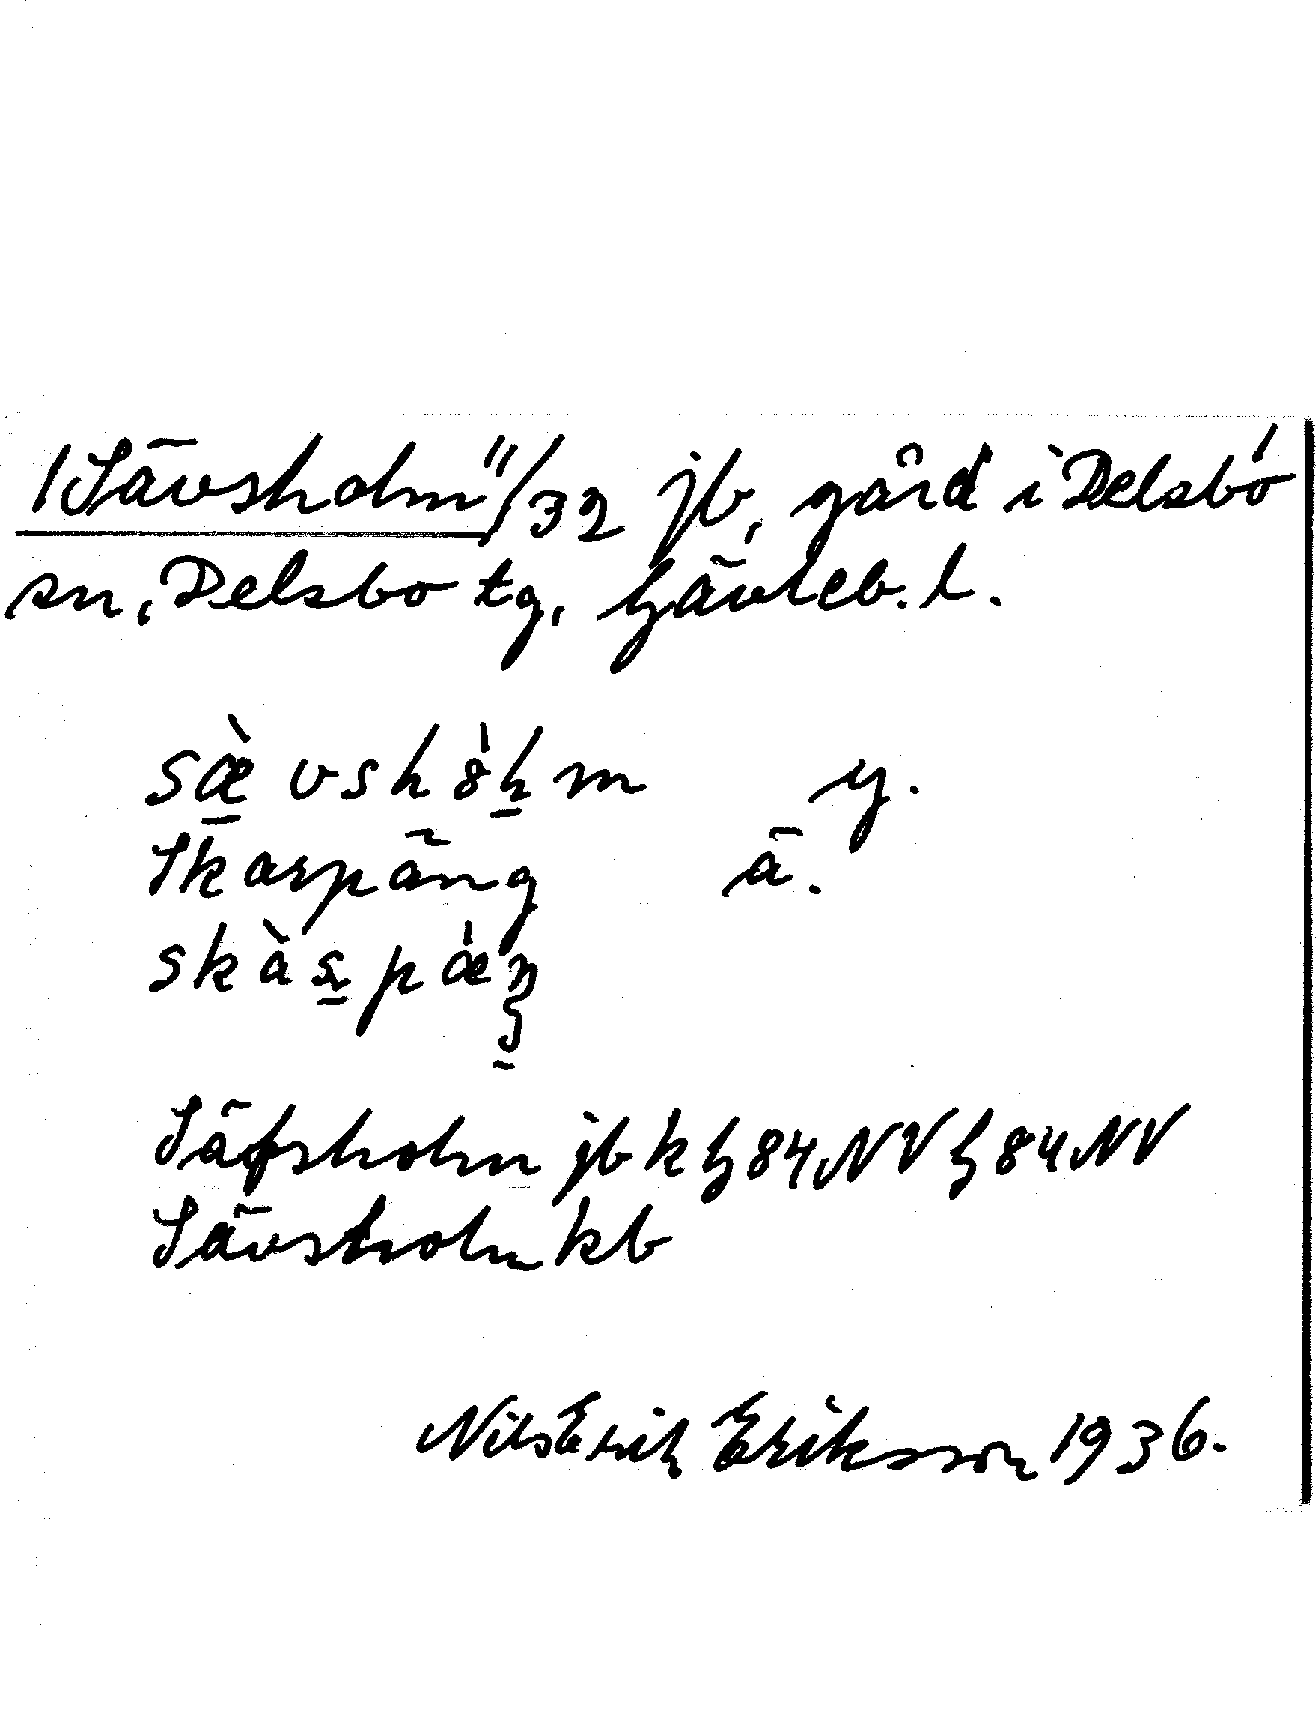 /Sävsholm"/32 jb, gård i Delsbo
sn, Delsbo tg, Gävleb. l.
sæ̀vshòl̠m y.
Skarpäng ä.
skàs̠pæ̀ŋ
Säfsholm jb k h 84 NV h 84 NV
Sävsholm kb
Nils Erik Eriksson 1936.